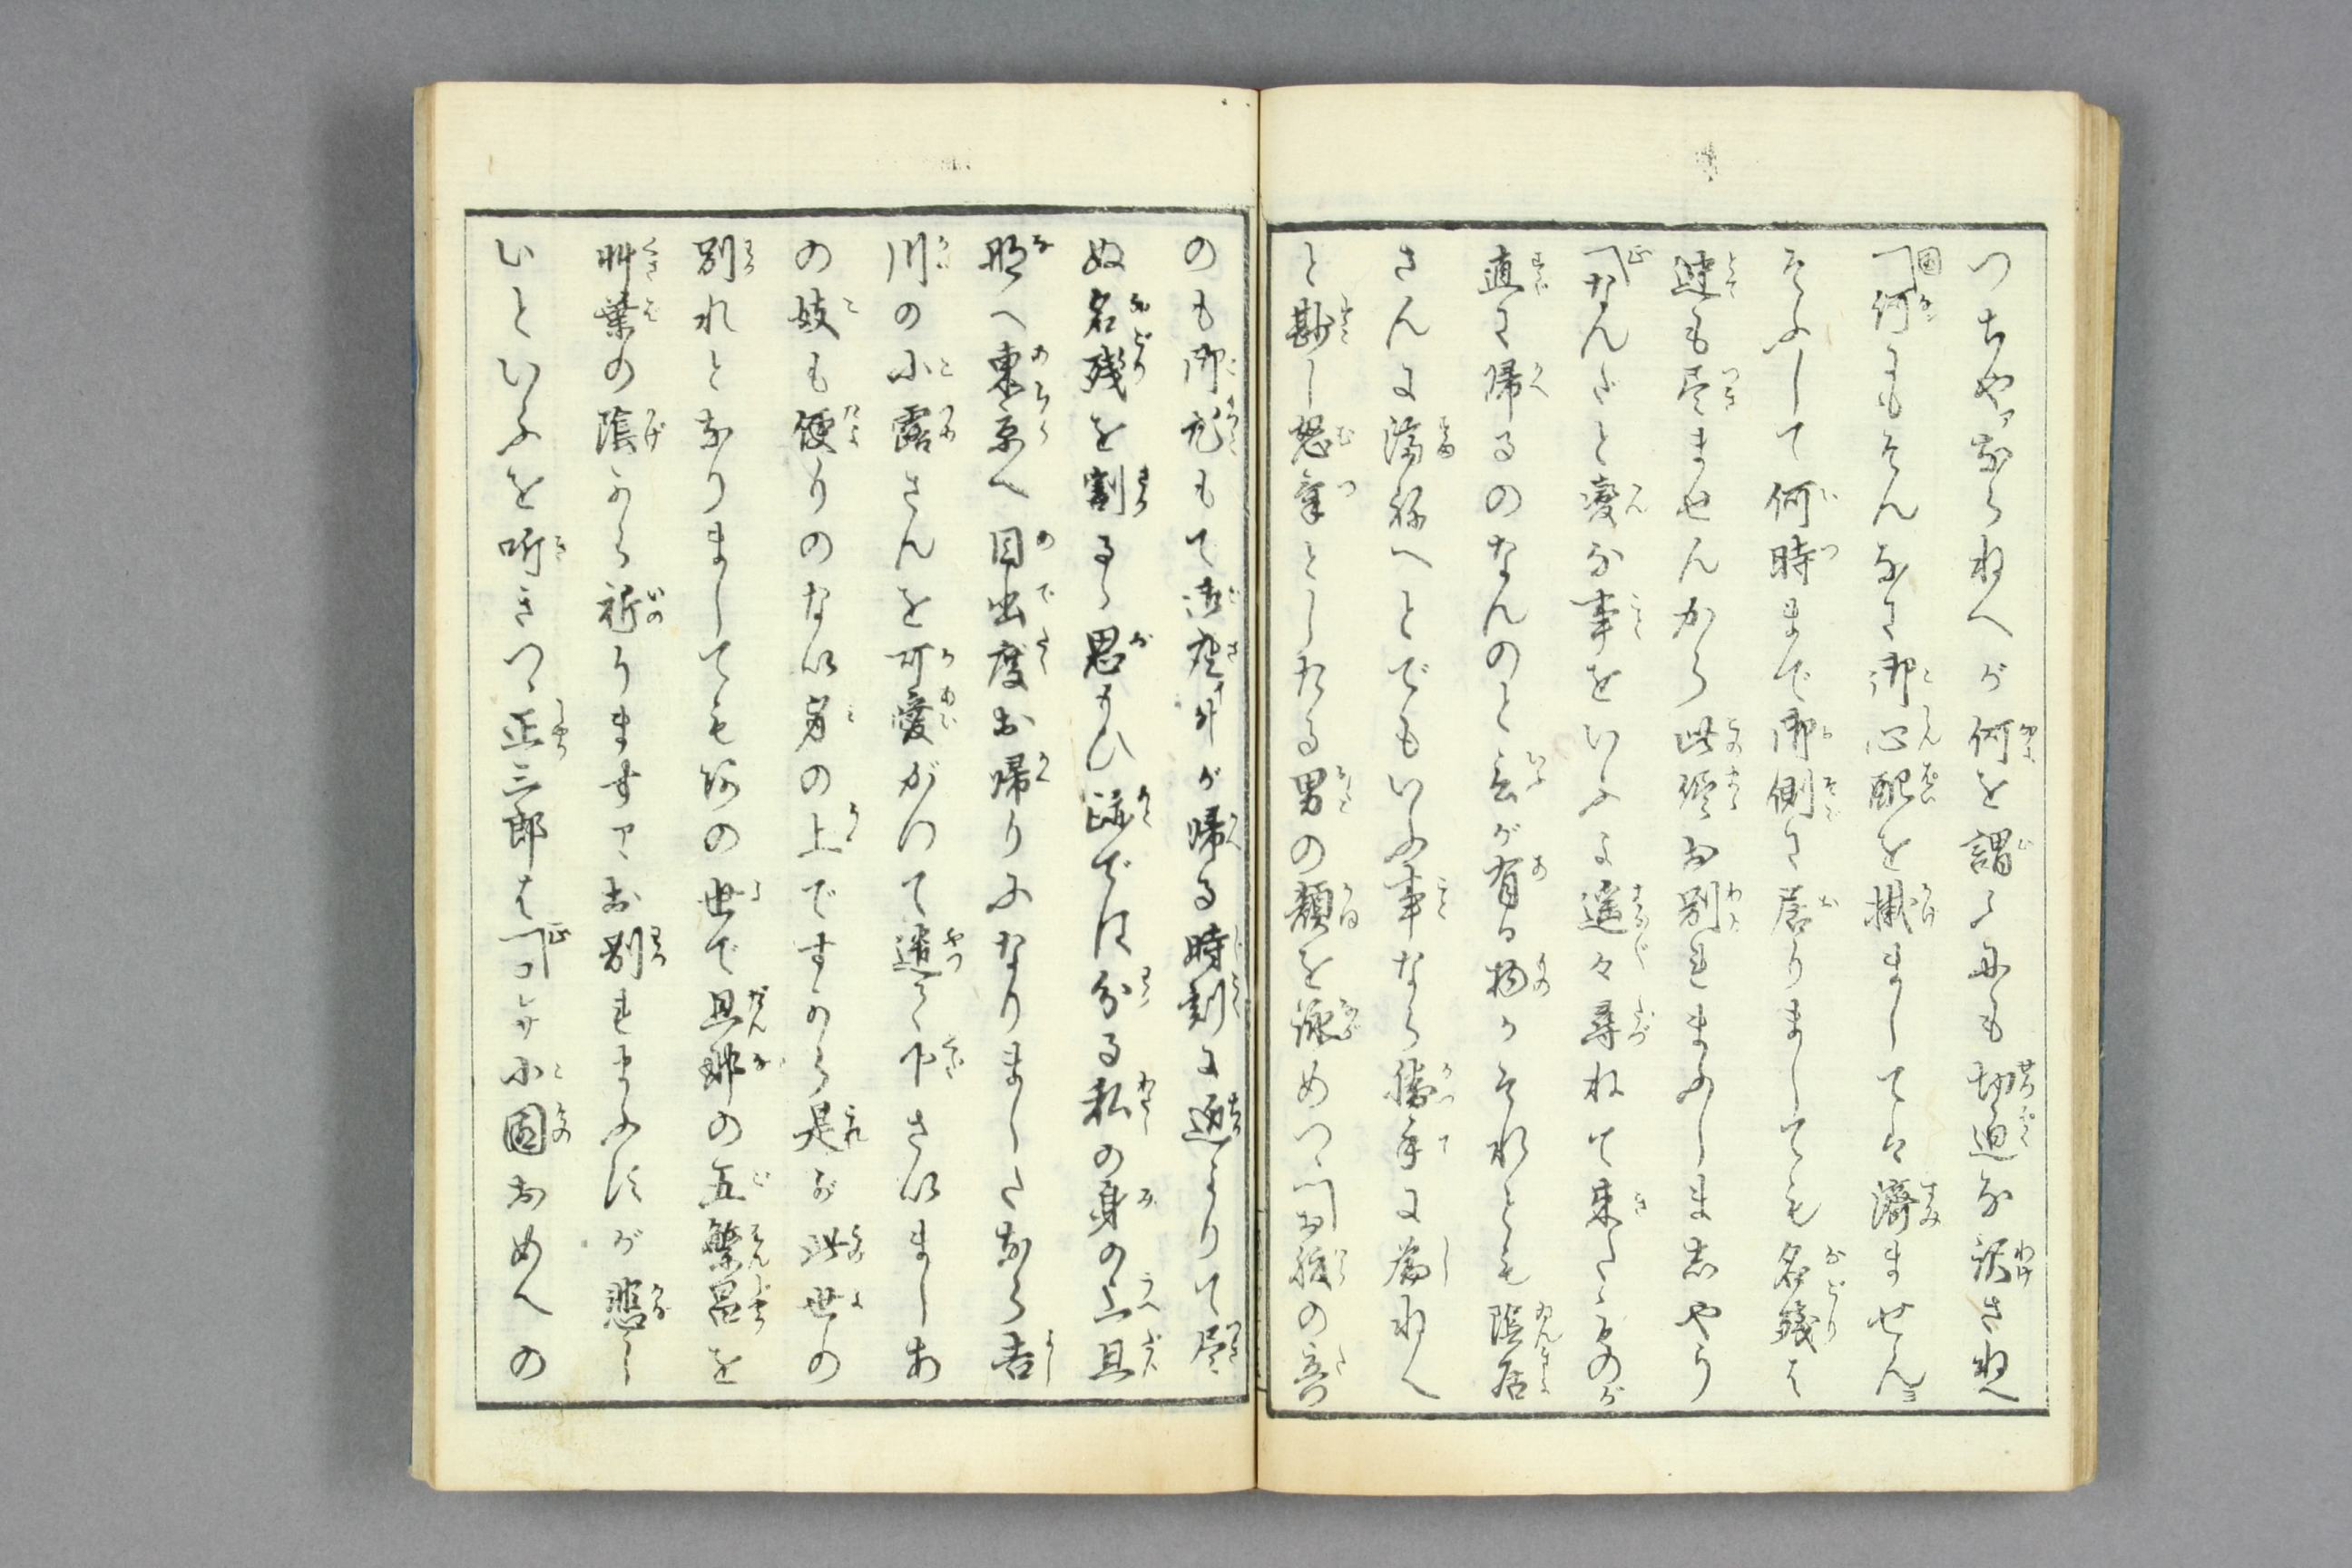 つちやアならねへが何を謂にも切迫な訳さねへ
国「何にもそんなに御心配を掛ましては済ませんヨ
そふして何時まで御側に居りましても名残は
迚も尽ませんから此儘お別れまふしませうやう
正「なんだと変な事をいふよ遙々尋ねて来たものが
直に帰るのなんのと云が有る物かそれとも隠居
さんに済ねへとでもいふ事なら勝手に為ねへ
と尠し怒気としたる男の顔を詠めつゝ「お腹の立
のも御尤もて御座升が帰る時刻に逼りて尽
ぬ名残を割る思ひ跡では分る私の身の上旦
那へ東京へ目出度お帰りになりましたなら吉
川の小露さんを可愛がつて遣て下さいましあ
の妓も便りのない身の上ですから是が此世の
別れとなりましても後の世で旦那の五繁昌を
艸葉の陰から祈りますアヽお別れまふすが悲し
いといふを听きつゝ正三郎は正「コレサ小国おめへの